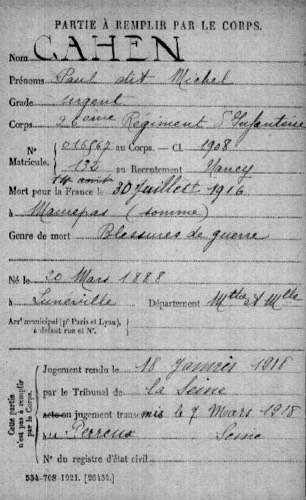 PARTIE À REMPLIR PAR LE CORPS.
Nom CAHEN
Prénoms Paul dit Michel
Grade sergent
Corps 26ème Régiment d'Infanterie
N° Matricule. 016967 au Corps. — Cl 1908
132 au Recrutement Nancy
Mort pour la France le 30 Juillet 1916
à Maurepas (somme)
Genre de mort Blessures de guerre
Né le 20 Mars 1888
à Lunéville Département Mthe et Mlle
Arrt municipal (pr Paris et Lyon), à défaut rue et N°.
Cette partie n'est pas à remplir par le Corps.
Jugement rendu le 18 Janvier 1918
par le Tribunal de la Seine
acte ou jugement transcrit le 7 Mars 1918
au Perreux Seine
N° du registre d'état civil
534-708-1921. [20434.]